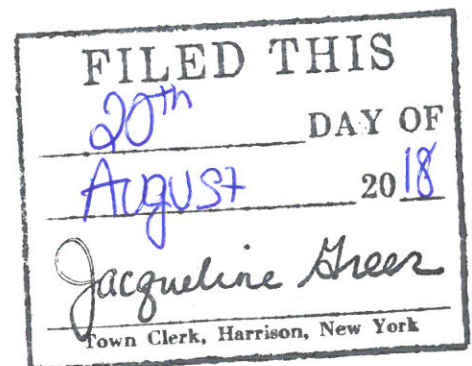 FILED THIS
20th DAY OF
August 2018
Jacqueline Greer
Town Clerk, Harrison, New York